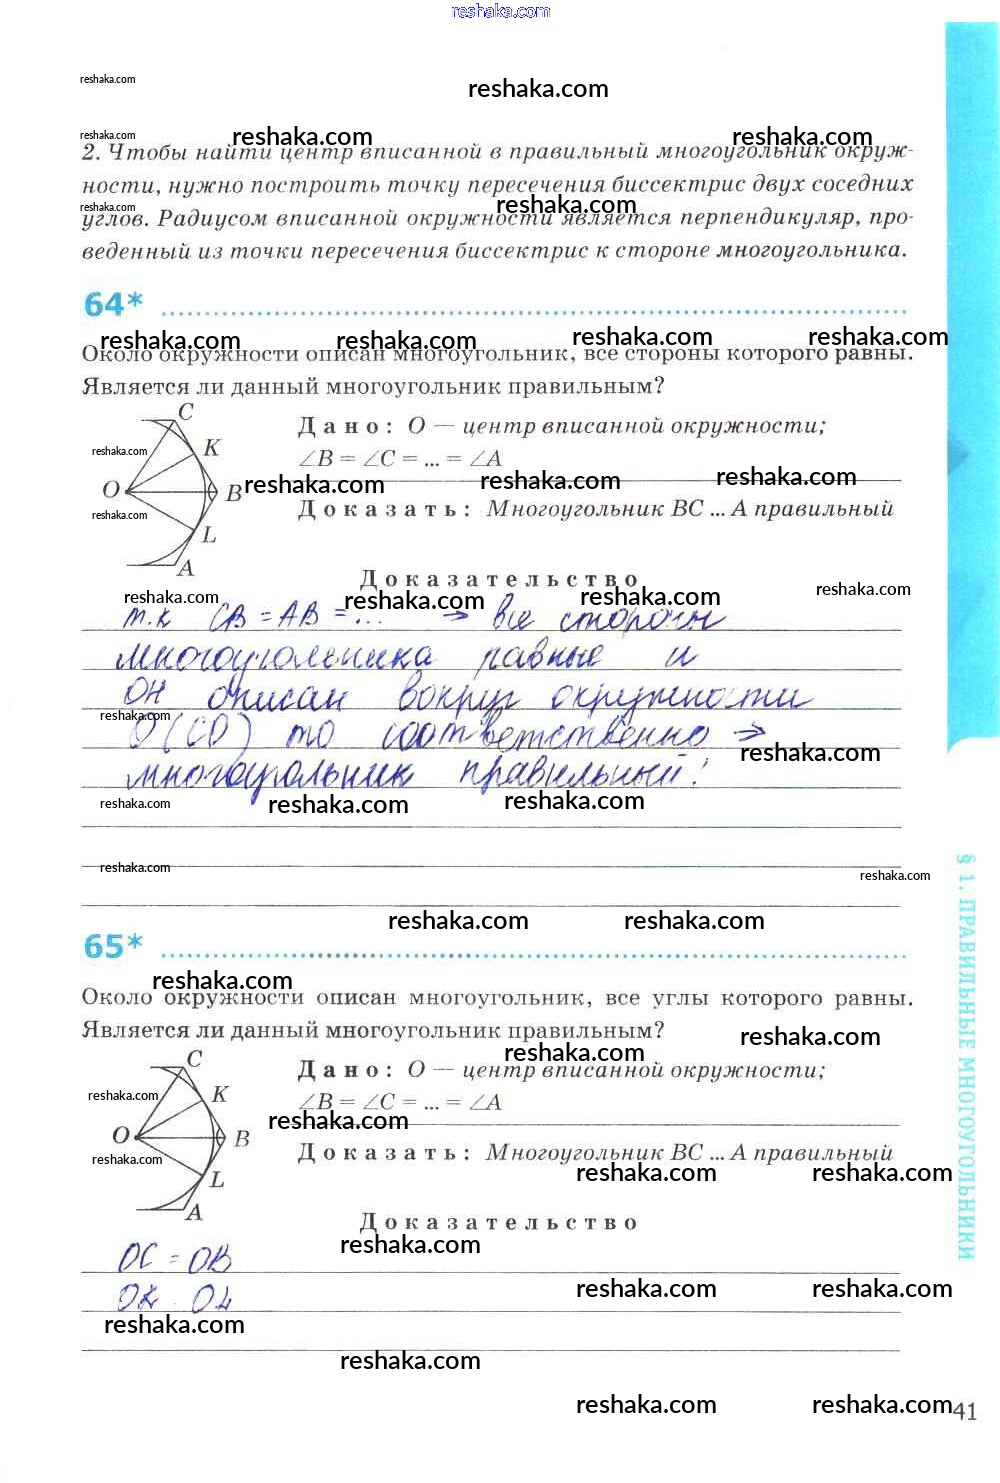 reshaka.com
reshaka.com
reshaka.com
reshaka.com reshaka.com reshaka.com
2. Чтобы найти центр вписанной в правильный многоугольник окруж-
ности, нужно построить точку пересечения биссектрис двух соседних
reshaka.com reshaka.com
углов. Радиусом вписанной окружности является перпендикуляр, про-
веденный из точки пересечения биссектрис к стороне многоугольника.
64*
reshaka.com reshaka.com reshaka.com reshaka.com
Около окружности описан многоугольник, все стороны которого равны.
Является ли данный многоугольник правильным?
C
K
O
B
L
A
reshaka.com
reshaka.com
Дано: O — центр вписанной окружности;
∠B = ∠C = ... = ∠A
reshaka.com reshaka.com reshaka.com
Доказать: Многоугольник BC ... A правильный
Доказательство
reshaka.com reshaka.com reshaka.com reshaka.com
т.к CB = AB = ... → все стороны
многоугольника равные и
он описан вокруг окружности
reshaka.com
O (CO) то соответственно ⇒
reshaka.com
многоугольник правильный!
reshaka.com reshaka.com reshaka.com
reshaka.com
reshaka.com
reshaka.com reshaka.com
65*
reshaka.com
Около окружности описан многоугольник, все углы которого равны.
Является ли данный многоугольник правильным?
reshaka.com reshaka.com
C
K
O
B
L
A
reshaka.com
reshaka.com
Дано: O — центр вписанной окружности;
∠B = ∠C = ... = ∠A
reshaka.com
Доказать: Многоугольник BC ... A правильный
reshaka.com reshaka.com
Доказательство
reshaka.com
OC = OB
OK OL
reshaka.com reshaka.com
reshaka.com
reshaka.com
reshaka.com reshaka.com
§ 1. ПРАВИЛЬНЫЕ МНОГОУГОЛЬНИКИ
41